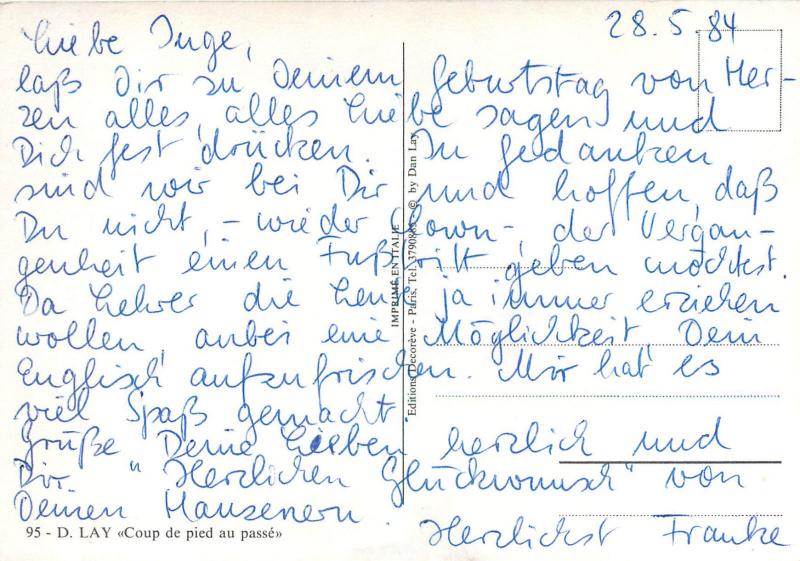 28.5.84
Liebe Inge,
laß Dir zu Deinem Geburtstag von Her-
zen alles, alles Liebe sagen und
Dich fest drücken. In Gedanken
sind wir bei Dir und hoffen, daß
Du nicht, - wie der Clown -, der Vergan-
genheit einen Fußtritt geben möchtest.
Da Lehrer die Leute ja immer erziehen
wollen, anbei eine Möglichkeit, Dein
Englisch aufzufrischen. Mir hat es
viel Spaß gemacht.
Grüße Deine Lieben herzlich und
Dir "Herzlichen Glückwunsch" von
Deinen Hausenern.
Herzlichst Franke
95 - D. LAY «Coup de pied au passé»
IMPRIMÉ EN ITALIE
Editions Decorève - Paris, Tel. 3790888 © by Dan Lay